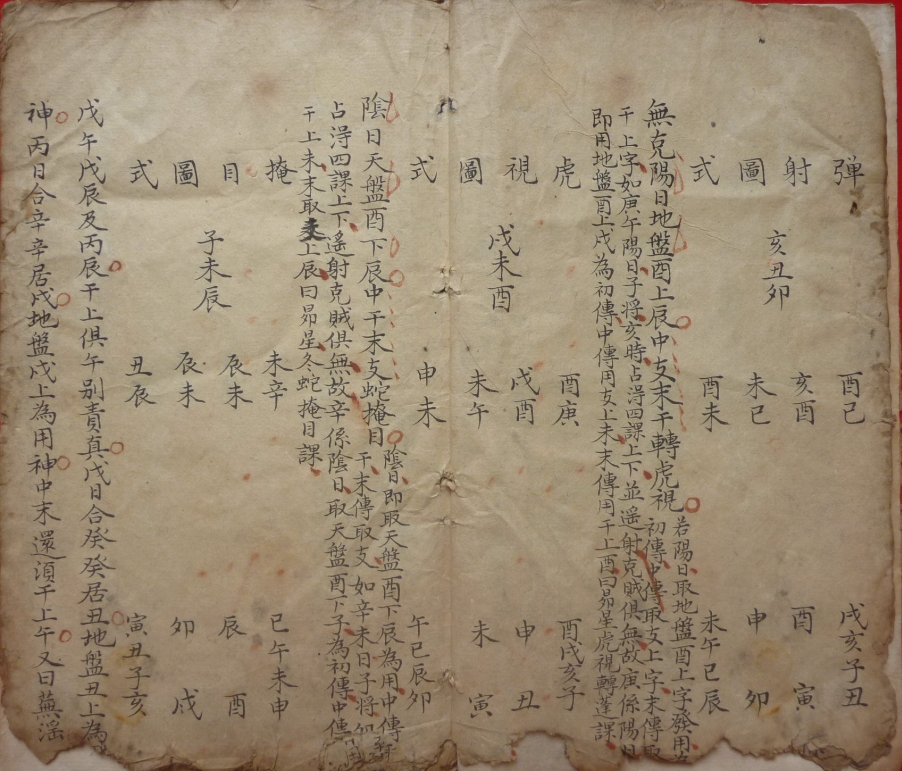 弹 酉巳 戌亥子丑
射 亥酉 酉寅
亥丑卯
圖 未巳 申卯
式 酉未 未午巳辰
無克陽日地盤酉上辰中支末干轉虎視
若陽日取地盤酉上字發用
初傳中傳取支上字末傳取
干上字如庚午陽日子將亥時占淂四課上下並遥射克賊俱無故庚係陽日
即用地盤酉上戌為初傳中傳用支上未末傳用干上酉曰昴星虎視轉蓬課
虎 酉庚 酉戌亥子
視 戌酉 申丑
戌未酉
圖 未午 未寅
式 申未 午巳辰卯
陰日天盤酉下辰中干末支蛇掩目
陰日即取天盤酉下辰為用中傳
干末傳取支如辛未日子將
占淂四課上下遥射克賊俱無故辛係陰日取天盤酉下子為初傳中傳
干上未末取支上辰曰昴星冬蛇掩目課
掩 未辛 巳午未申
目 辰未 辰酉
子未辰
圖 辰未 卯戌
式 丑辰 寅丑子亥
戊午戊辰及丙辰干上俱午别責真戊日合癸癸居丑地盤丑上為
神丙日合辛辛居戌地盤戌上為用神中末還湏干上午又曰蕪淫